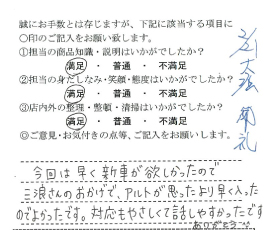 誠にお手数とは存じますが、下記に該当する項目に
〇印のご記入をお願い致します。
①担当の商品知識・説明はいかがでしたか?
満足 ・ 普通 ・ 不満足
②担当の身だしなみ・笑顔・態度はいかがでしたか?
満足 ・ 普通 ・ 不満足
③店内外の整理・整頓・清掃はいかがでしたか?
満足 ・ 普通 ・ 不満足
◎ご意見・お気付きの点等、ご記入をお願いします。
今回は早く新車が欲しかったので
三浪さんのおかげで、アルトが思ったより早く入った
のでよかったです。対応もやさしくて話しやすかったです
ありがとう